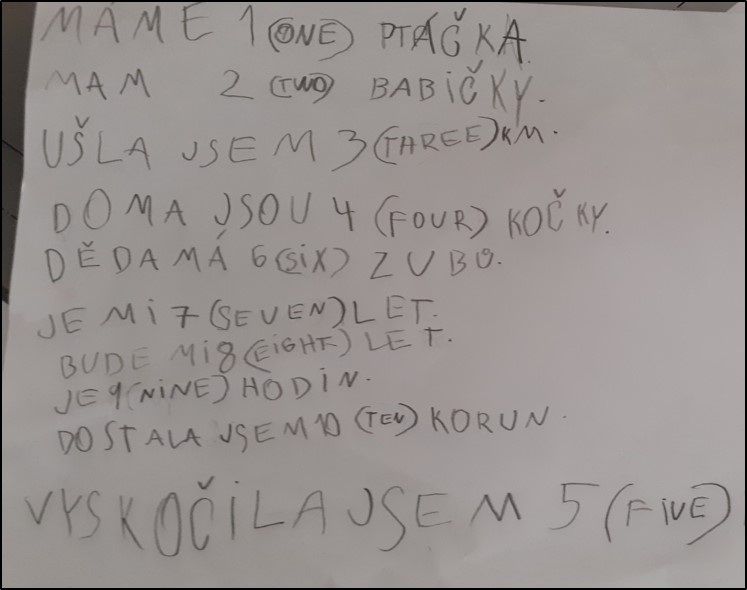 MÁME 1 (ONE) PTÁČKA.
MAM 2 (TWO) BABIČKY.
UŠLA JSEM 3 (THREE) KM.
DOMA JSOU 4 (FOUR) KOČKY.
DĚDA MÁ 6 (SIX) ZUBŮ.
JE MI 7 (SEVEN) LET.
BUDE MI 8 (EIGHT) LET.
JE 9 (NINE) HODIN.
DOSTALA JSEM 10 (TEN) KORUN.
VYSKOČILA JSEM 5 (FIVE)